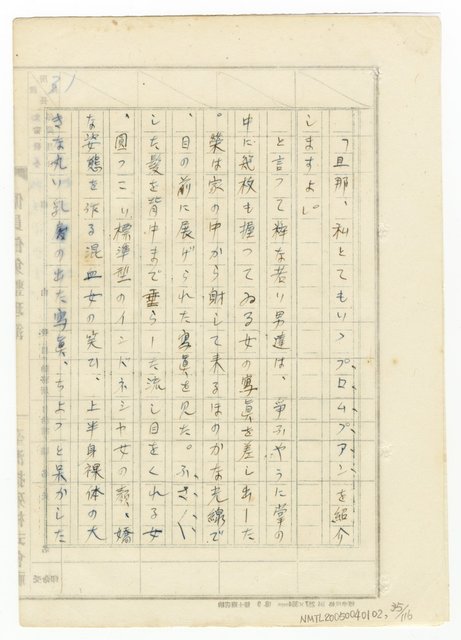 「旦那、私とてもいゝプロムプアンを紹介
しますよ」
と言つて粋な若い男達は、争ふやうに掌の
中に幾枚も握つてゐる女の寫眞を差し出した
。榮は家の中から射して来るほのかな光線で
、目の前に展げられた寫眞を見た。ふさ〱
した髪を背中まで垂らした流し目をくれる女
、圓つこい標準型のインドネシヤ女の顔、嬌
な姿態を作る混血女の笑ひ、上半身裸体の大
きな丸い乳房の出た寫眞、ちよつと呆かした
NMTL20050040102, 95/116